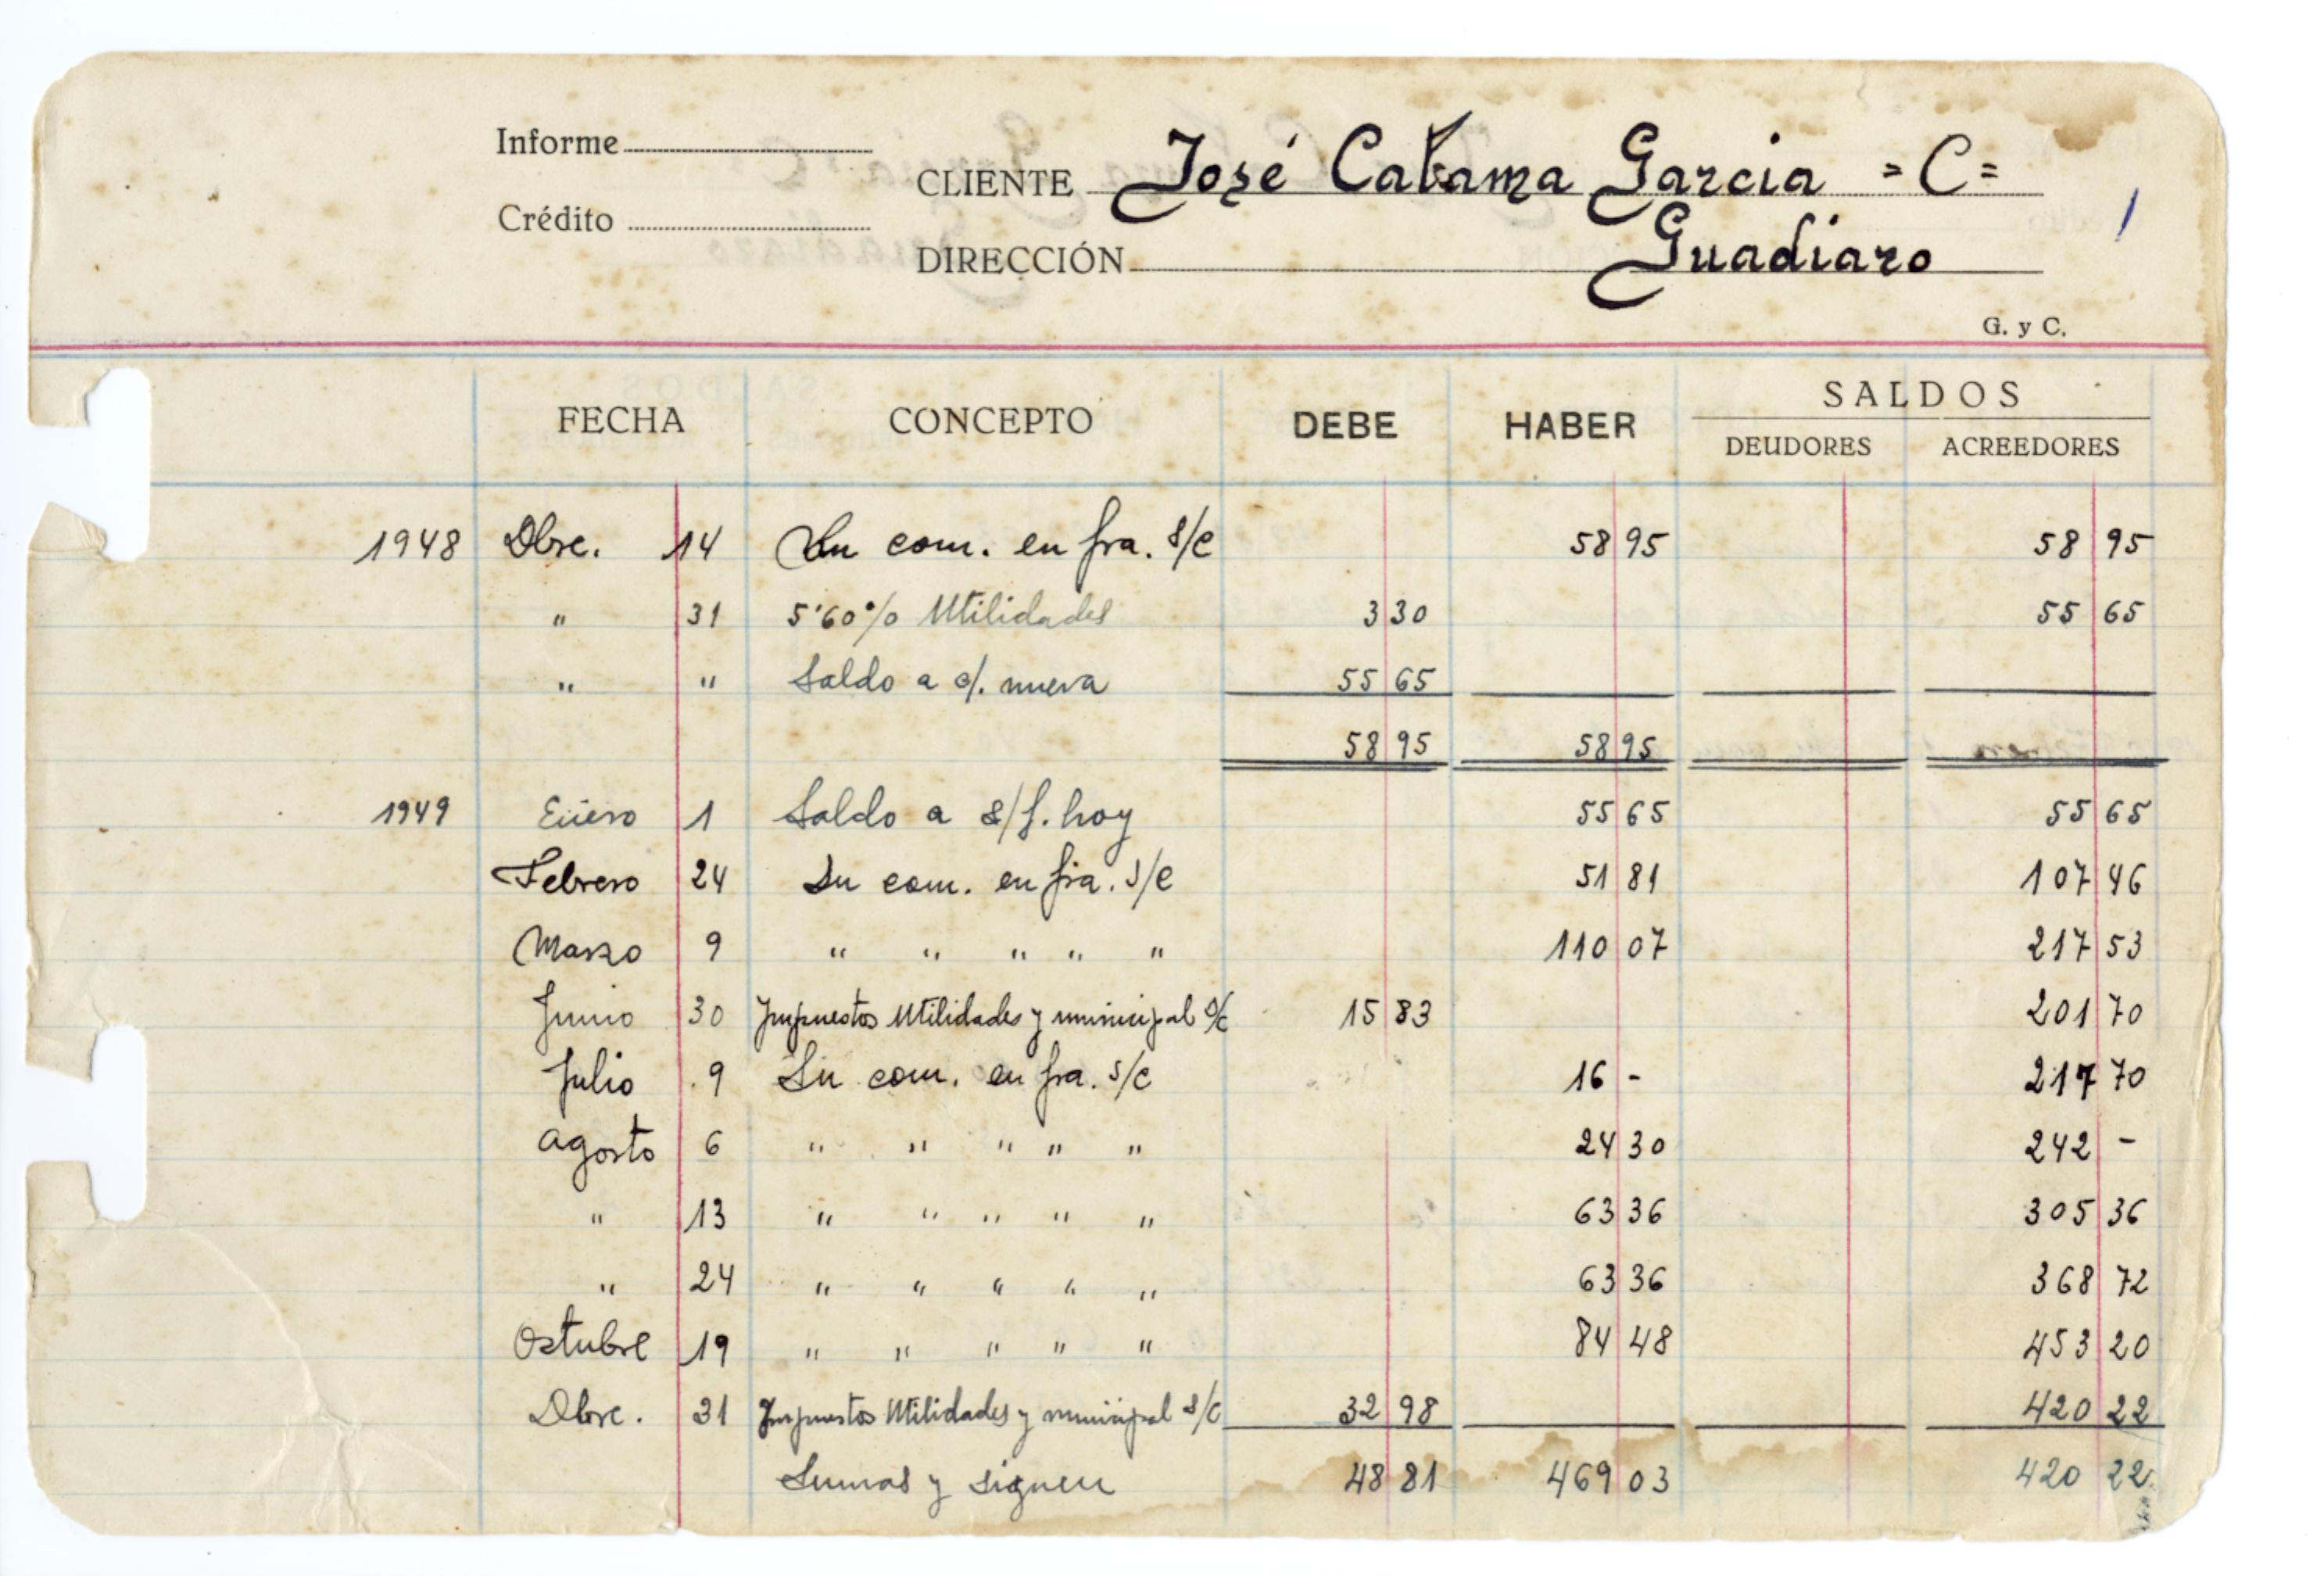 Informe
CLIENTE José Catama Garcia =C=
Crédito
DIRECCIÓN Guadiaro
1
G. y C.
FECHA CONCEPTO DEBE HABER SALDOS
DEUDORES ACREEDORES
1948 Dbre. 14 Su com. en fra. s/c 58 95 58 95
" 31 5'60% Utilidades 3 30 55 65
" " Saldo a c/. nueva 55 65
58 95 58 95
1949 Enero 1 Saldo a s/f. hoy 55 65 55 65
Febrero 24 Su com. en fra. s/c 51 81 107 46
Marzo 9 " " " " " 110 07 217 53
Junio 30 Impuestos Utilidades y municipal s/c 15 83 201 70
Julio 9 Su com. en fra. s/c 16 - 217 70
Agosto 6 " " " " " 24 30 242 -
" 13 " " " " " 63 36 305 36
" 24 " " " " " 63 36 368 72
Octubre 19 " " " " " 84 48 453 20
Dbre. 31 Impuestos Utilidades y municipal s/c 32 98 420 22
Sumas y siguen 48 81 469 03 420 22